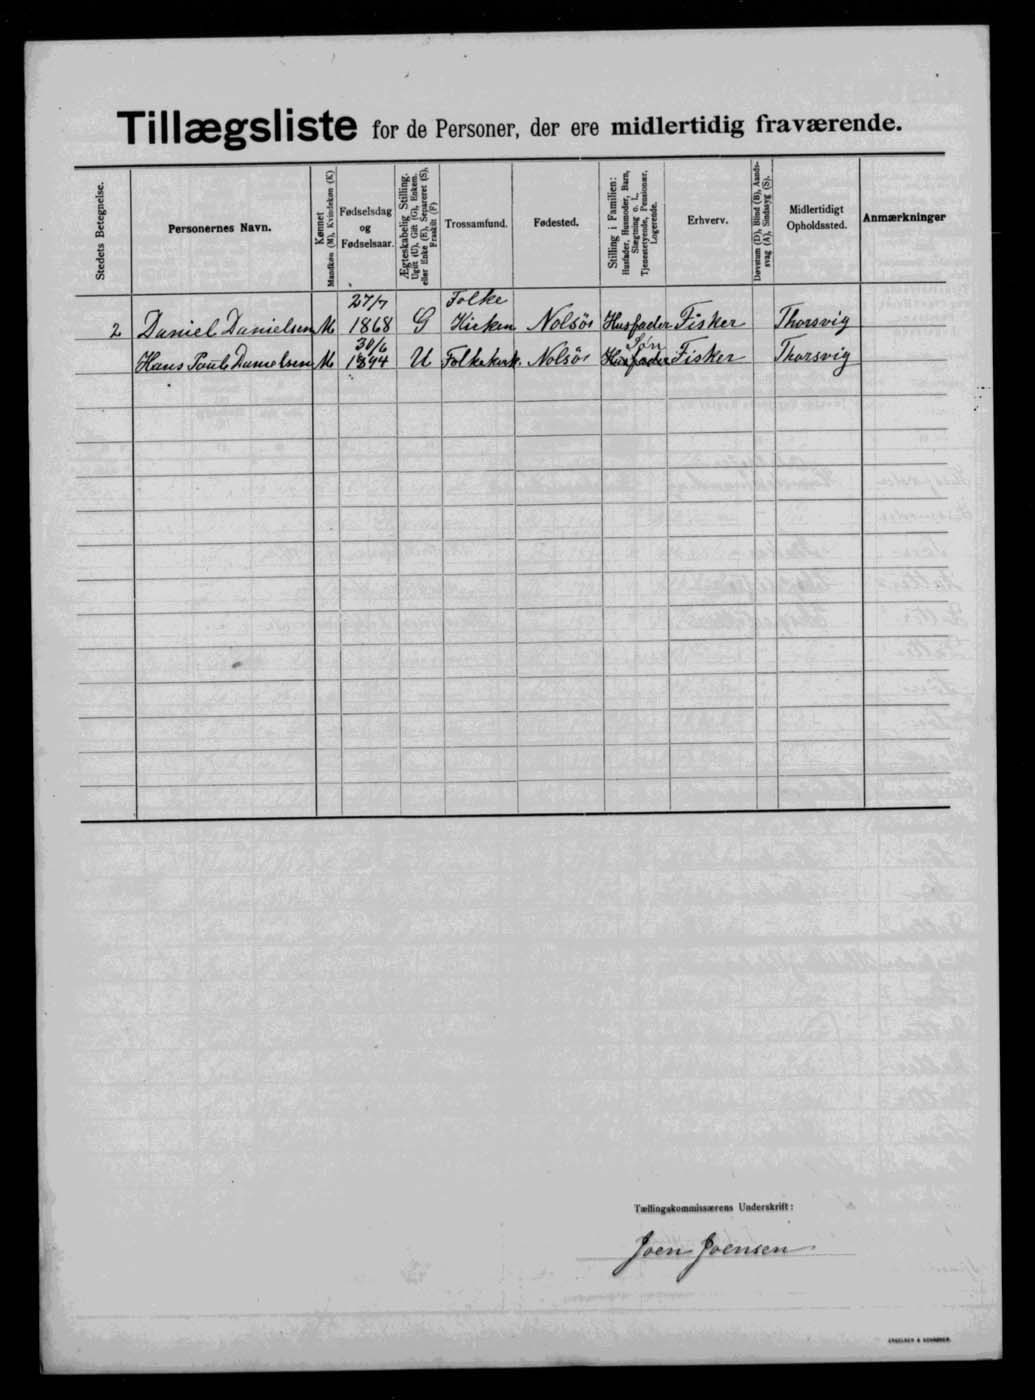 Tillægsliste for de Personer, der ere midlertidig fraværende.
Stedets Betegnelse.
Personernes Navn.
Kønnet
Mandkøn (M), Kvindekøn (K)
Fødselsdag
og
Fødselsaar.
Ægteskabelig Stilling.
Ugift (U), Gift (G), Enkem.
eller Enke (E), Separeret (S),
Fraskilt (F)
Trossamfund.
Fødested.
Stilling i Familien:
Husfader, Husmoder, Barn,
Slægtning o. l.,
Tjenestetyende, Pensionær,
Logerende.
Erhverv.
Døvstum (D), Blind (B), Aands-
svag (A), Sindssyg (S).
Midlertidigt
Opholdssted.
Anmærkninger
27/7 Folke
2 Daniel Danielsen M 1868 G Kirken Nolsö Husfader Fisker Thorsvig
30/6 Sön
Hans Poul Danielsen M 1894 U Folkekirk. Nolsö Husfader Fisker Thorsvig
Tællingskommissærens Underskrift:
Joen Joensen
ENGELSEN & SCHRØDER.